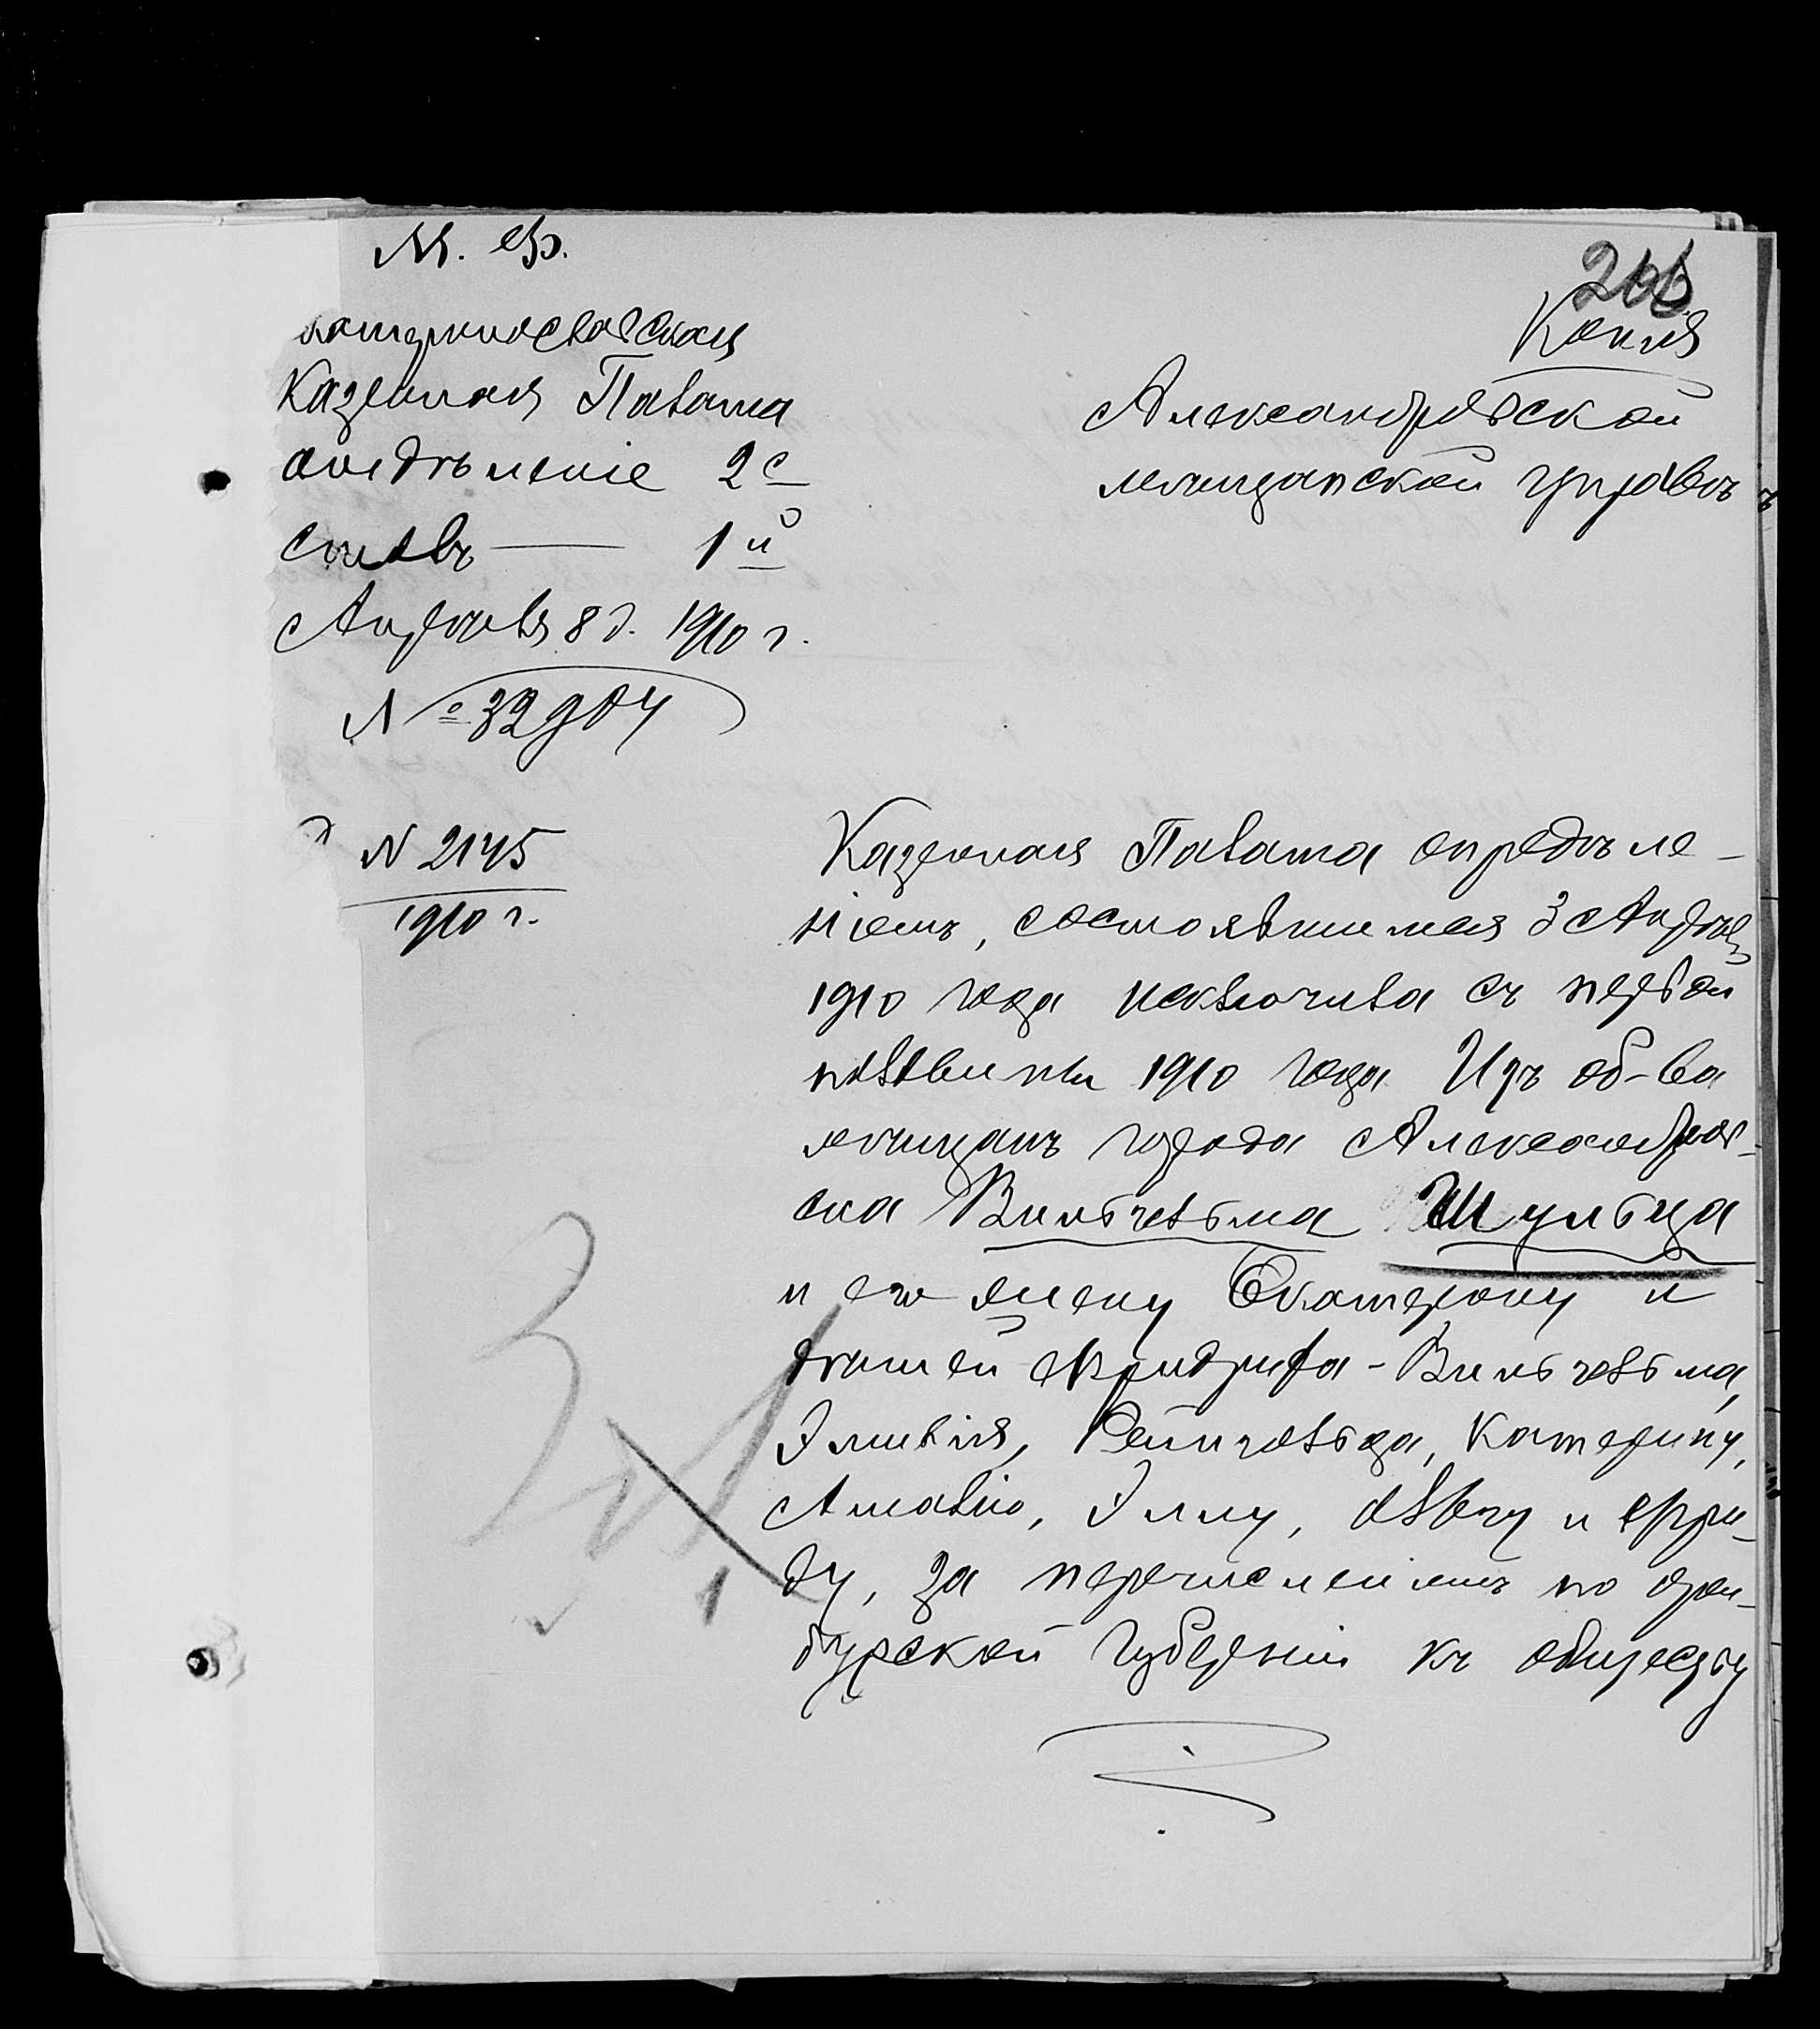 М. Ф.
206
Копія
катеринославская
Казенная Палата
отдѣленіе 2е
столъ — 1й
Апрѣля 8 д. 1910 г.
№ 32904
Александровской
мѣщанской управѣ
№ 2145
1910 г.
Казенная Палата опредѣле-
ніемъ, состоявшимся 3 Апрѣля
1910 года исключила съ первой
половины 1910 года Изъ об-ва
мѣщанъ города Александров-
ска Вильгельма Шульца
и его жену Екатерину и
дѣтей Фридриха-Вильгельма,
Эмилія, Рейнгольда, Катерину,
Амалію, Эмму, Ольгу и Фри-
ду, за перечисленіемъ по Орен-
бургской губерніи къ обществу